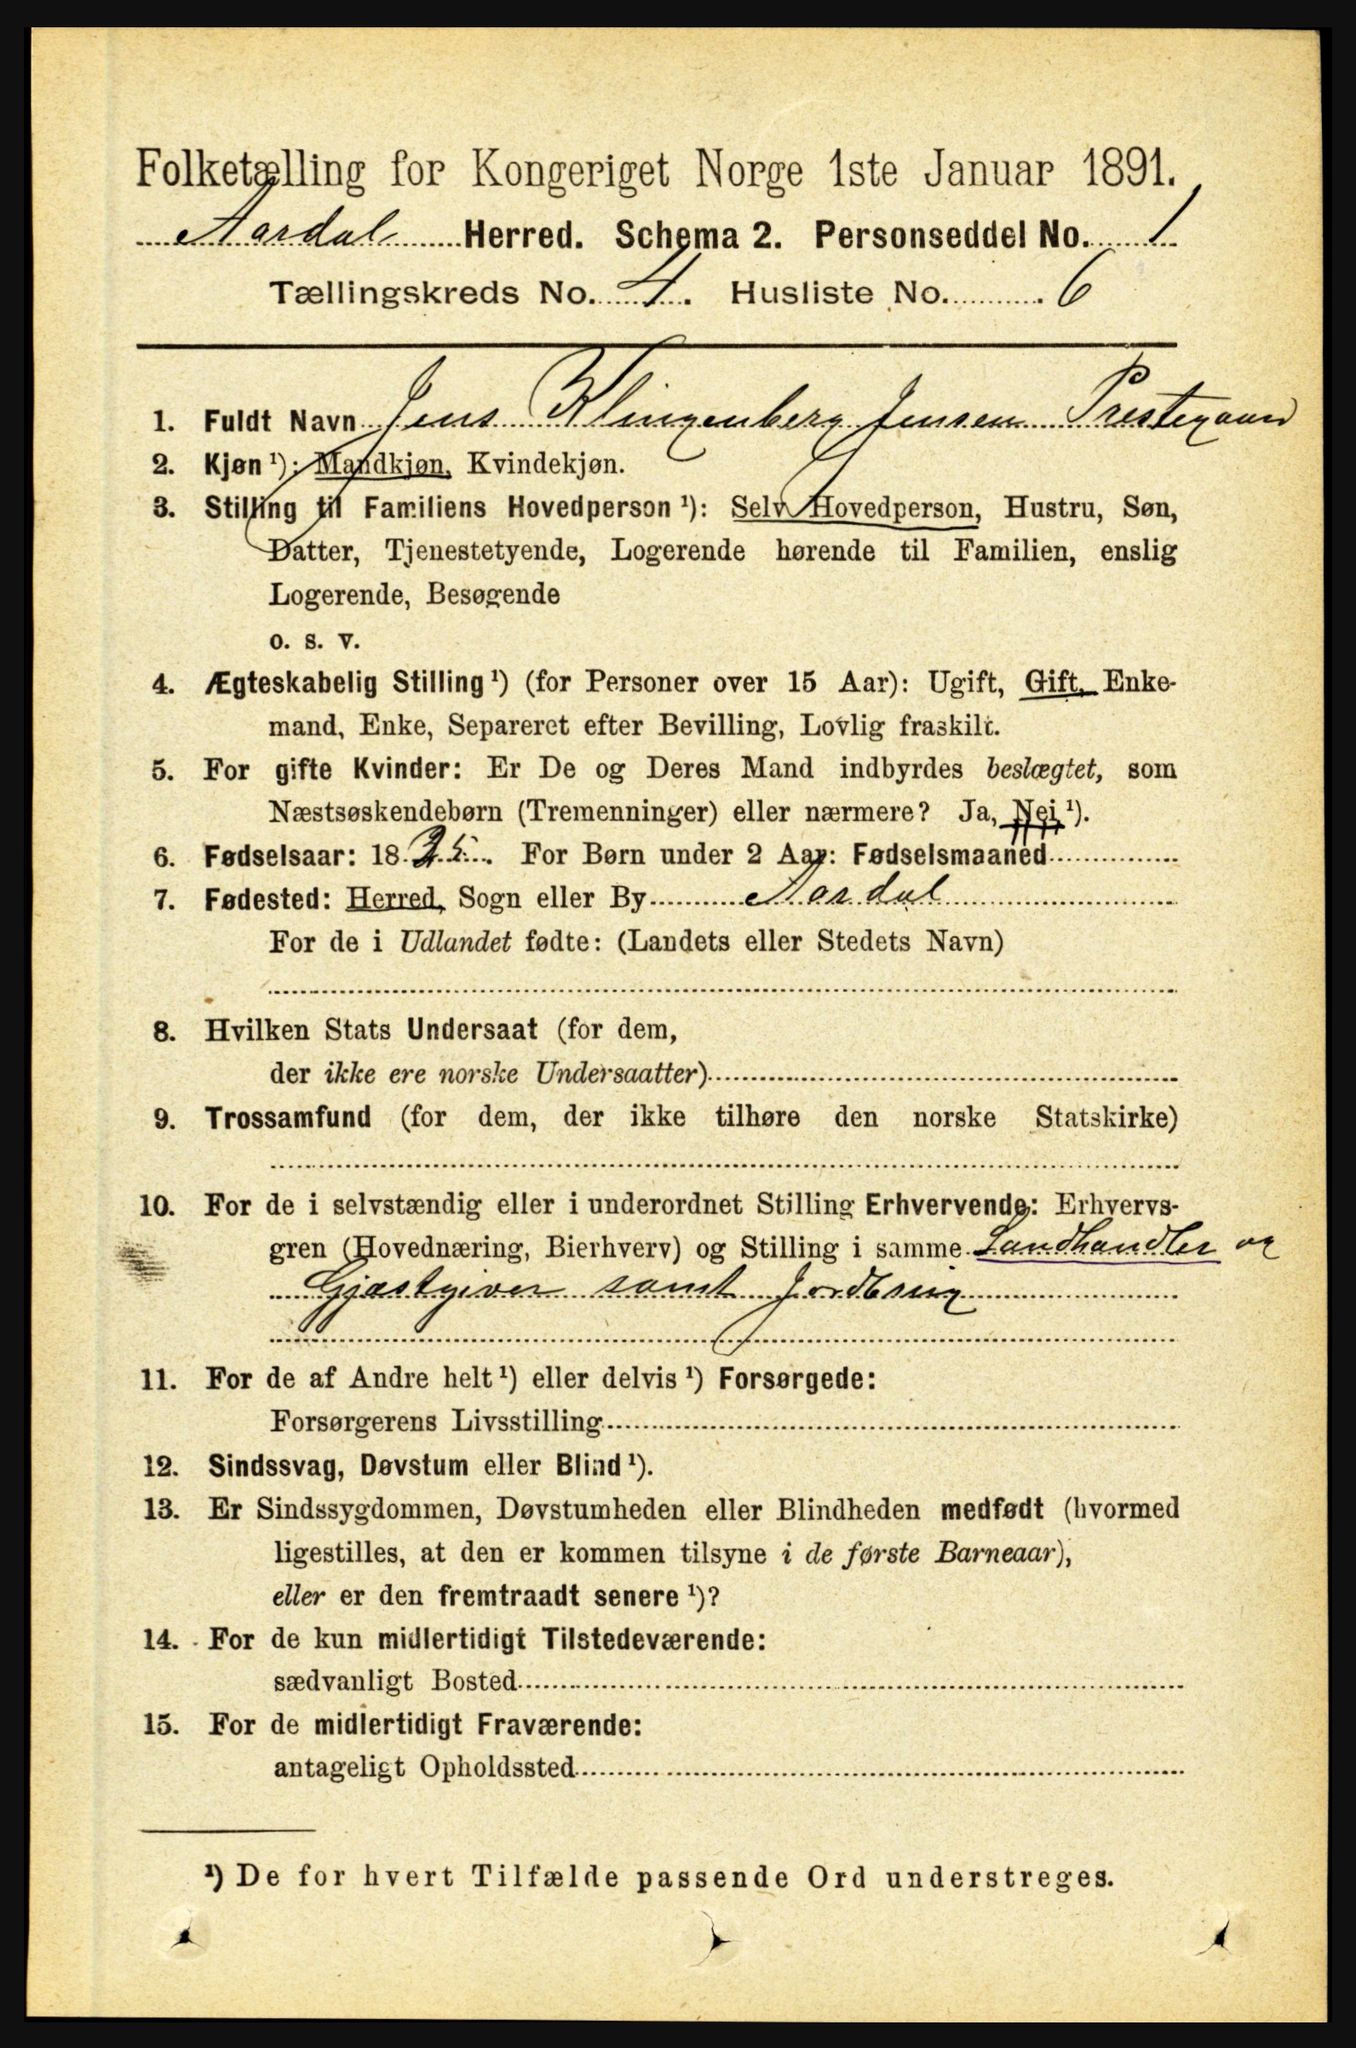 Folketælling for Kongeriget Norge 1ste Januar 1891.
Aardal Herred. Schema 2. Personseddel No. 1
Tællingskreds No. 4. Husliste No. 6
1. Fuldt Navn Jens Klingenberg Jensen Prestegaard
2. Kjøn¹): Mandkjøn, Kvindekjøn.
3. Stilling til Familiens Hovedperson¹): Selv Hovedperson, Hustru, Søn,
Datter, Tjenestetyende, Logerende hørende til Familien, enslig
Logerende, Besøgende
o. s. v.
4. Ægteskabelig Stilling¹) (for Personer over 15 Aar): Ugift, Gift, Enke-
mand, Enke, Separeret efter Bevilling, Lovlig fraskilt.
5. For gifte Kvinder: Er De og Deres Mand indbyrdes beslægtet, som
Næstsøskendebørn (Tremenninger) eller nærmere? Ja, Nei¹).
6. Fødselsaar: 18 For Børn under 2 Aar: Fødselsmaaned
7. Fødested: Herred, Sogn eller By Aardal
For de i Udlandet fødte: (Landets eller Stedets Navn)
8. Hvilken Stats Undersaat (for dem,
der ikke ere norske Undersaatter)
9. Trossamfund (for dem, der ikke tilhøre den norske Statskirke)
10. For de i selvstændig eller i underordnet Stilling Erhvervende: Erhvervs-
gren (Hovednæring, Bierhverv) og Stilling i samme Landhandler og
Gjæstgiver samt Jordbrug
11. For de af Andre helt¹) eller delvis¹) Forsørgede:
Forsørgerens Livsstilling
12. Sindssvag, Døvstum eller Blind¹).
13. Er Sindssygdommen, Døvstumheden eller Blindheden medfødt (hvormed
ligestilles, at den er kommen tilsyne i de første Barneaar),
eller er den fremtraadt senere¹)?
14. For de kun midlertidigt Tilstedeværende:
sædvanligt Bosted
15. For de midlertidigt Fraværende:
antageligt Opholdssted
¹) De for hvert Tilfælde passende Ord understreges.